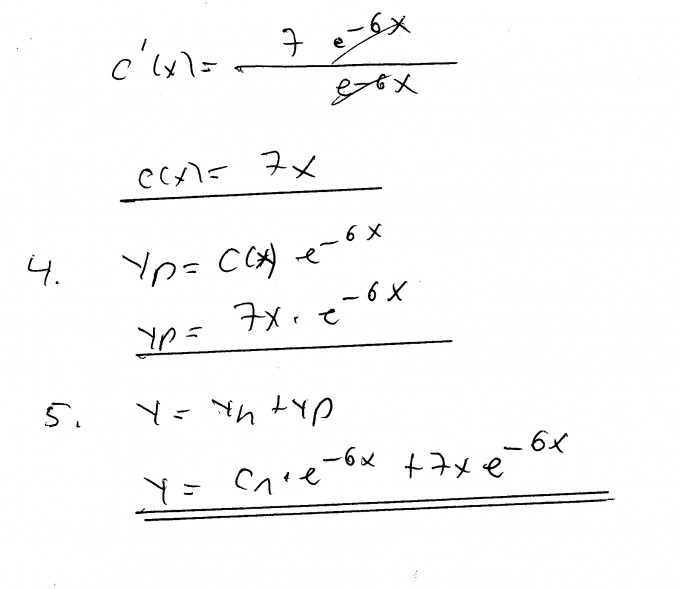 c'(x) = 7 e^{-6x} / e^{-6x}
c(x) = 7x
4. yp = C(x) e^{-6x}
yp = 7x · e^{-6x}
5. y = yh + yp
y = C1 · e^{-6x} + 7x e^{-6x}